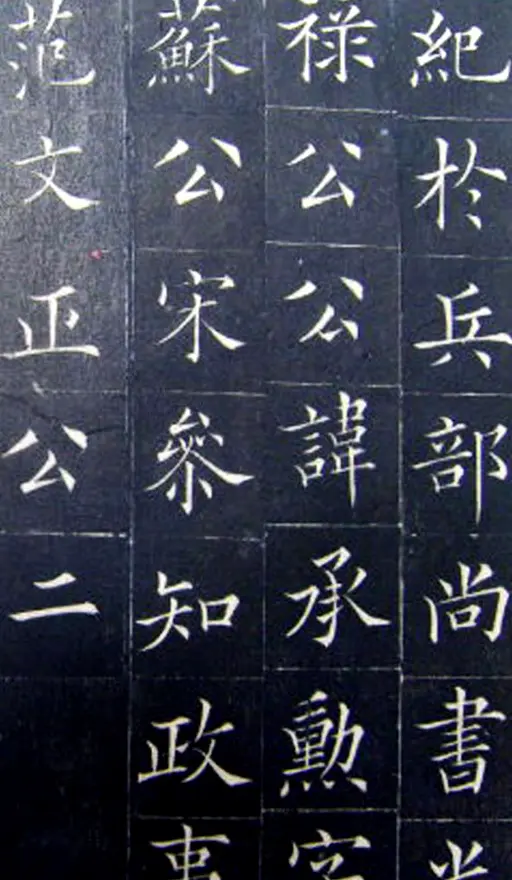 紀於兵部尚書
祿公公諱承勳字
蘇公宋參知政事
范文正公二